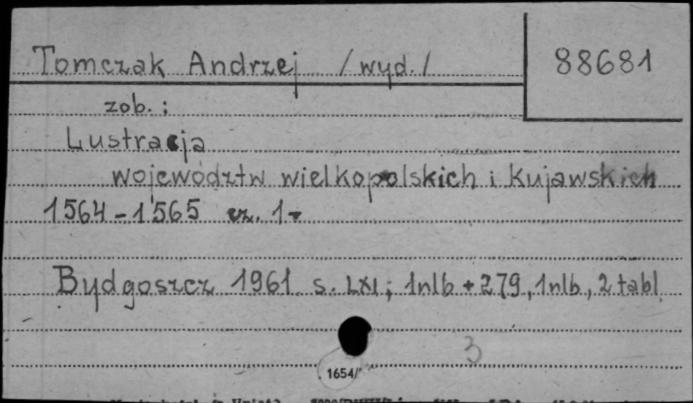 Tomczak Andrzej /wyd./
88681
zob.:
Lustracja
województw wielkopolskich i Kujawskich
1564-1565 cz. 1-
Bydgoszcz 1961 s. LXI; 1nlb + 279, 1nlb, 2 tabl
3
1654/